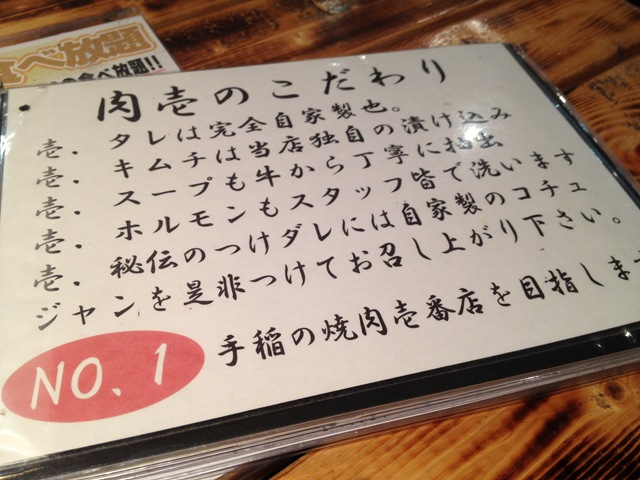 食べ放題
の食べ放題!!
肉壱のこだわり
壱.タレは完全自家製也。
壱.キムチは当店独自の漬け込み
壱.スープも牛から丁寧に抽出
壱.ホルモンもスタッフ皆で洗います
壱.秘伝のつけダレには自家製のコチュ
ジャンを是非つけてお召し上がり下さい。
NO.1
手稲の焼肉壱番店を目指します